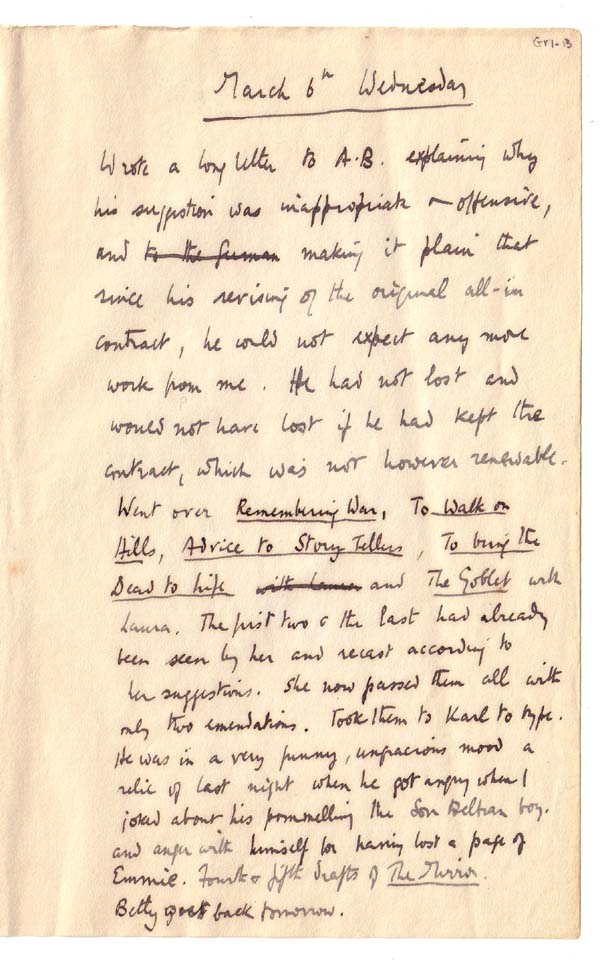 GY1-13
March 6th Wednesday
Wrote a long letter to A.B. explaining why
his suggestion was inappropriate & offensive,
and to the German making it plain that
since his revising of the original all-in
contract, he could not expect any more
work from me. He had not lost and
would not have lost if he had kept the
contract, which was not however renewable.
Went over Remembering War, To Walk on
Hills, Advice to Story Tellers, To bring the
Dead to Life with Laura and The Goblet with
Laura. The first two & the last had already
been seen by her and recast according to
her suggestions. She now passed them all with
only two emendations. Took them to Karl to type.
He was in a very funny, ungracious mood a
relic of last night when he got angry when I
joked about his pommelling the Son Beltran boy.
and anger with himself for having lost a page of
Emmie. Fourth & fifth drafts of The Mirror.
Betty goes back tomorrow.